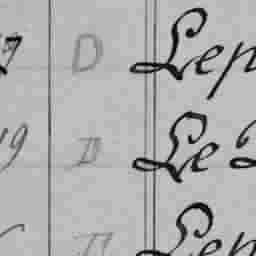 7 D Lep
19 D Le
D Lep